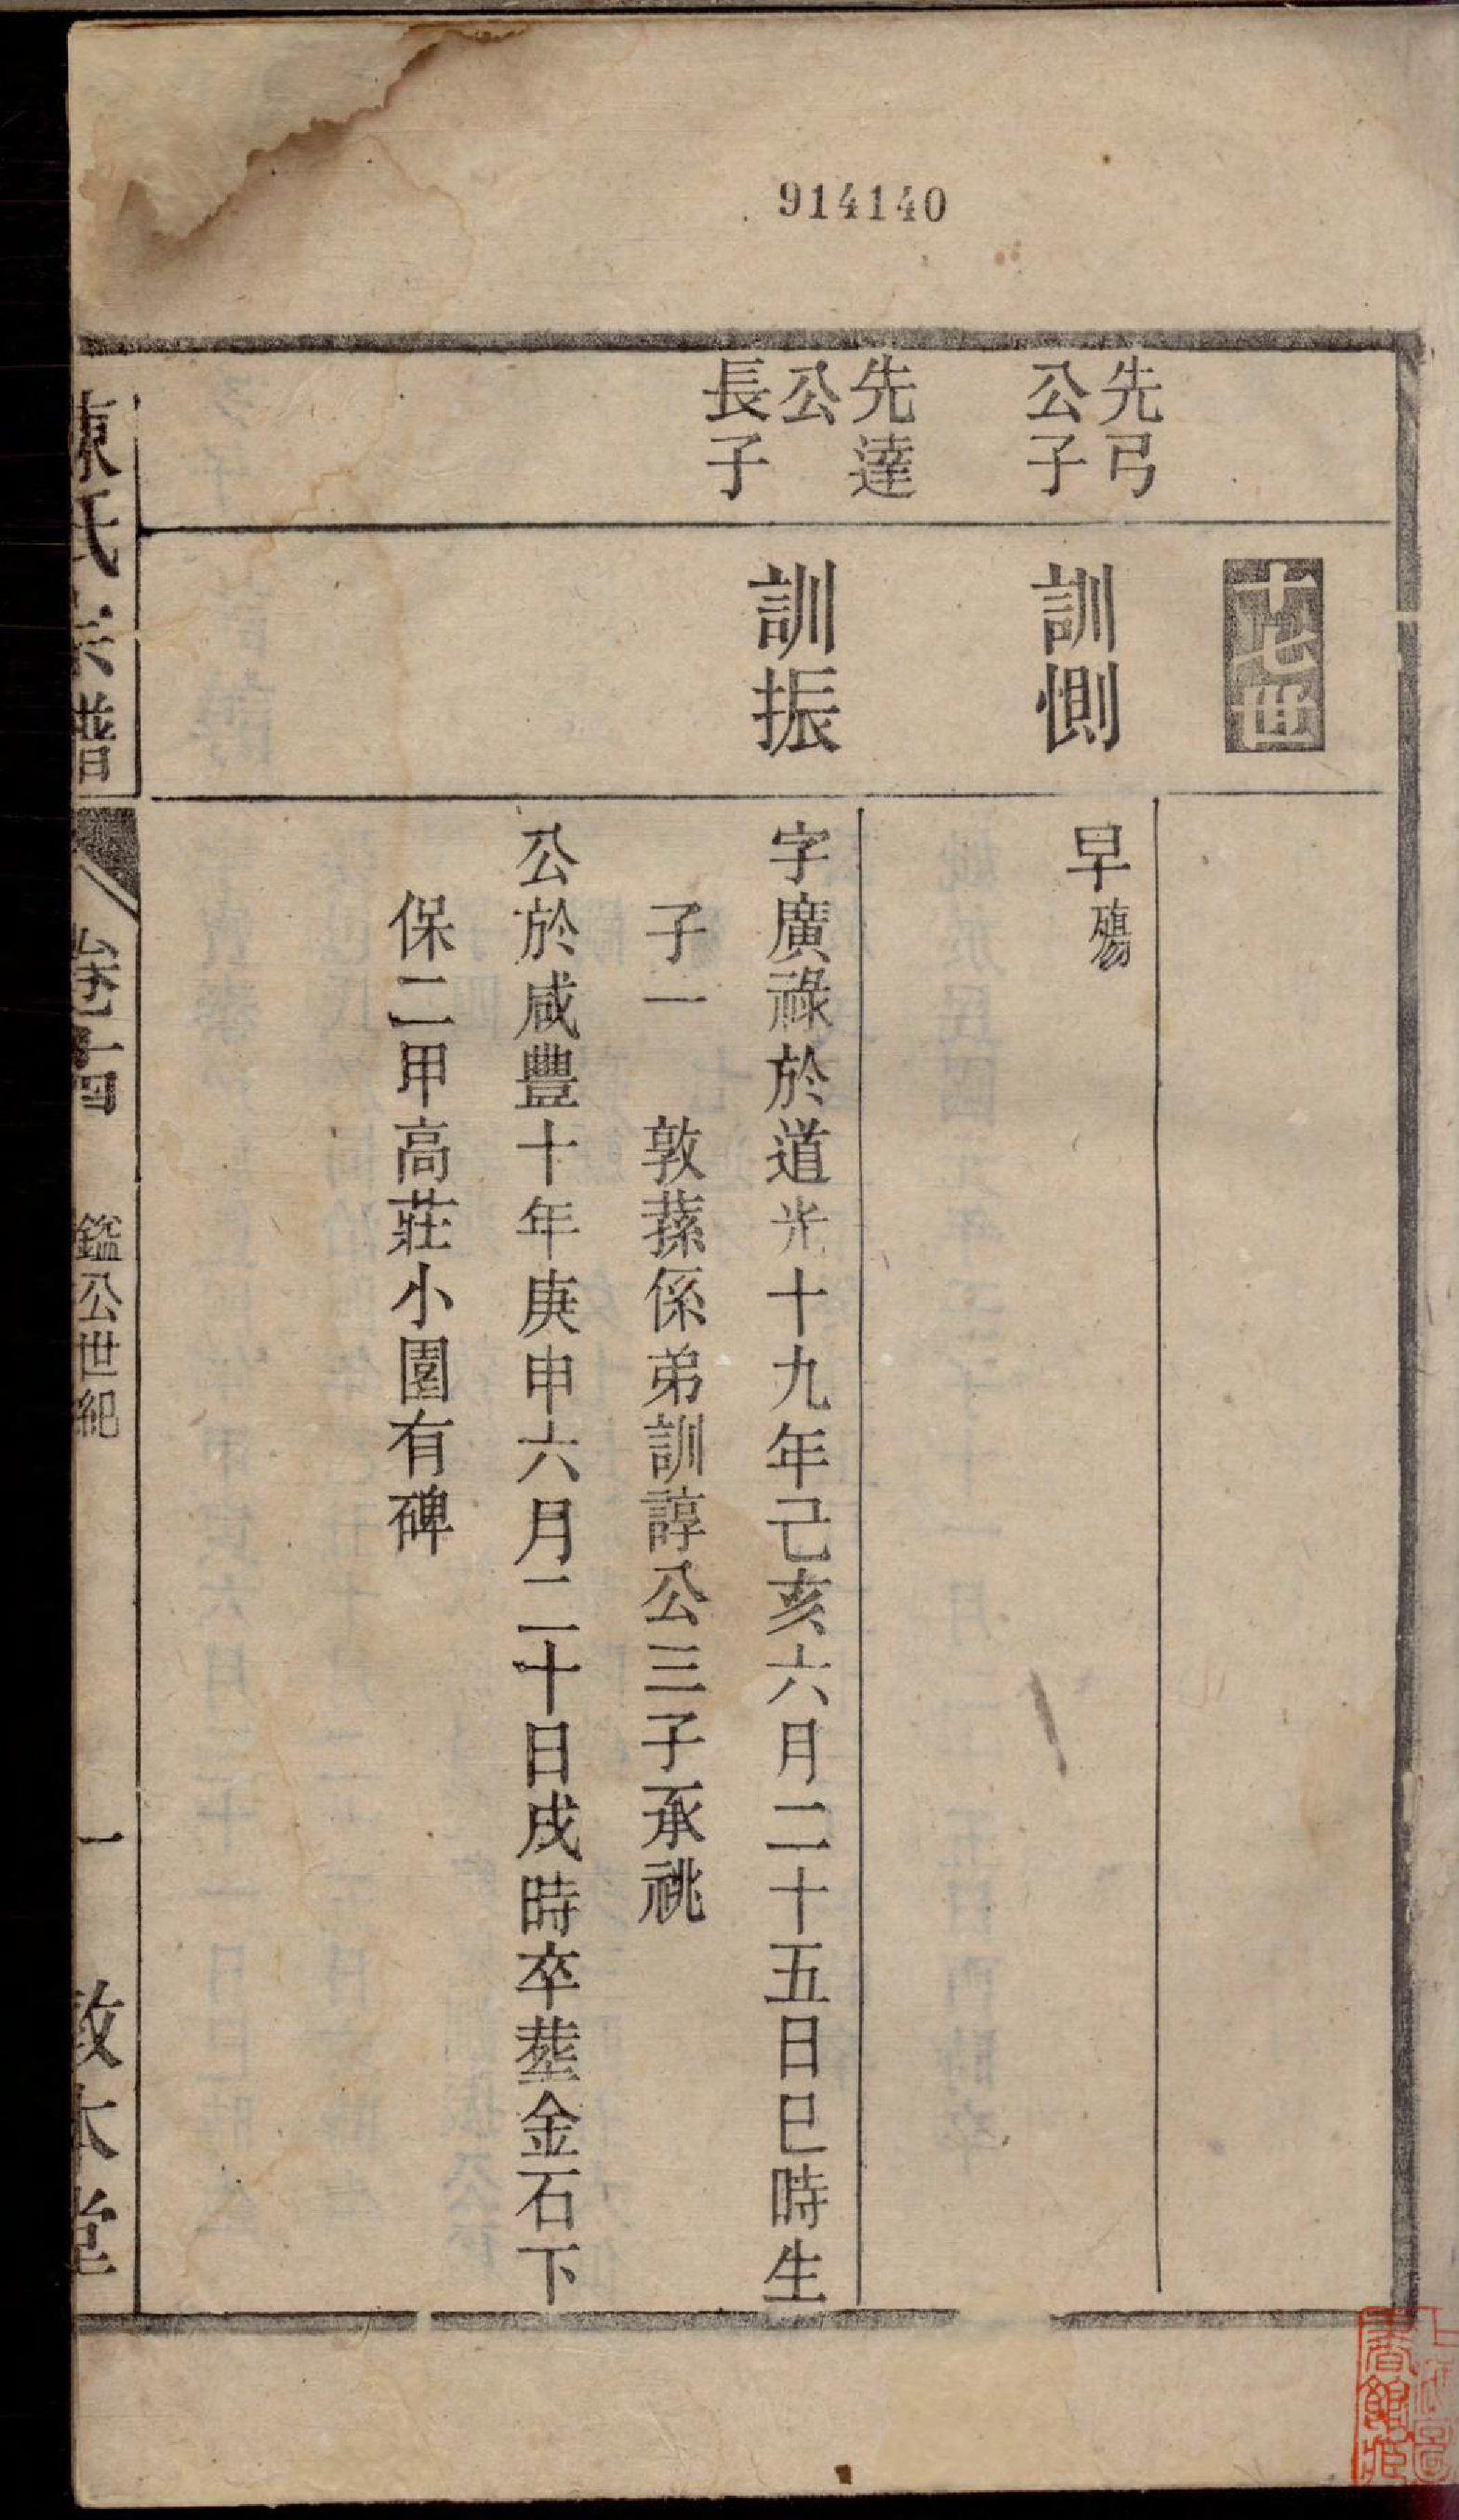 914140
十七世
先弓
公子
訓惻
早殤
先達
公
長子
訓振
字廣祿於道光十九年己亥六月二十五日巳時生
子一 敦蓀係弟訓諄公三子承祧
公於咸豐十年庚申六月二十日戌時卒塟金石下
保二甲高莊小園有碑
陳氏宗譜
卷十四
鑑公世紀
一
敦本堂
上海圖
書館藏